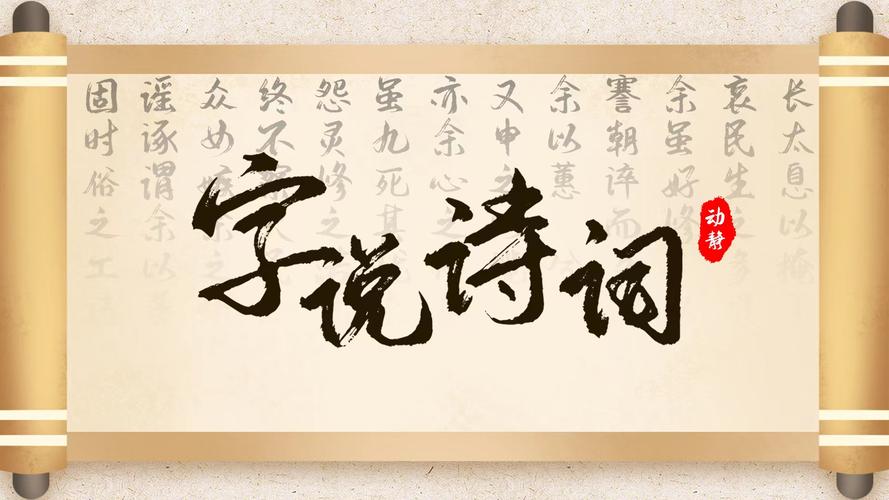 字说诗词
动静
长太息以掩
哀民生之多
余虽好修
謇朝谇而
余以蕙
又申之
亦余心之
虽九死其
怨灵修之
终不察夫
众女嫉余之
谣诼谓余以善
固时俗之工